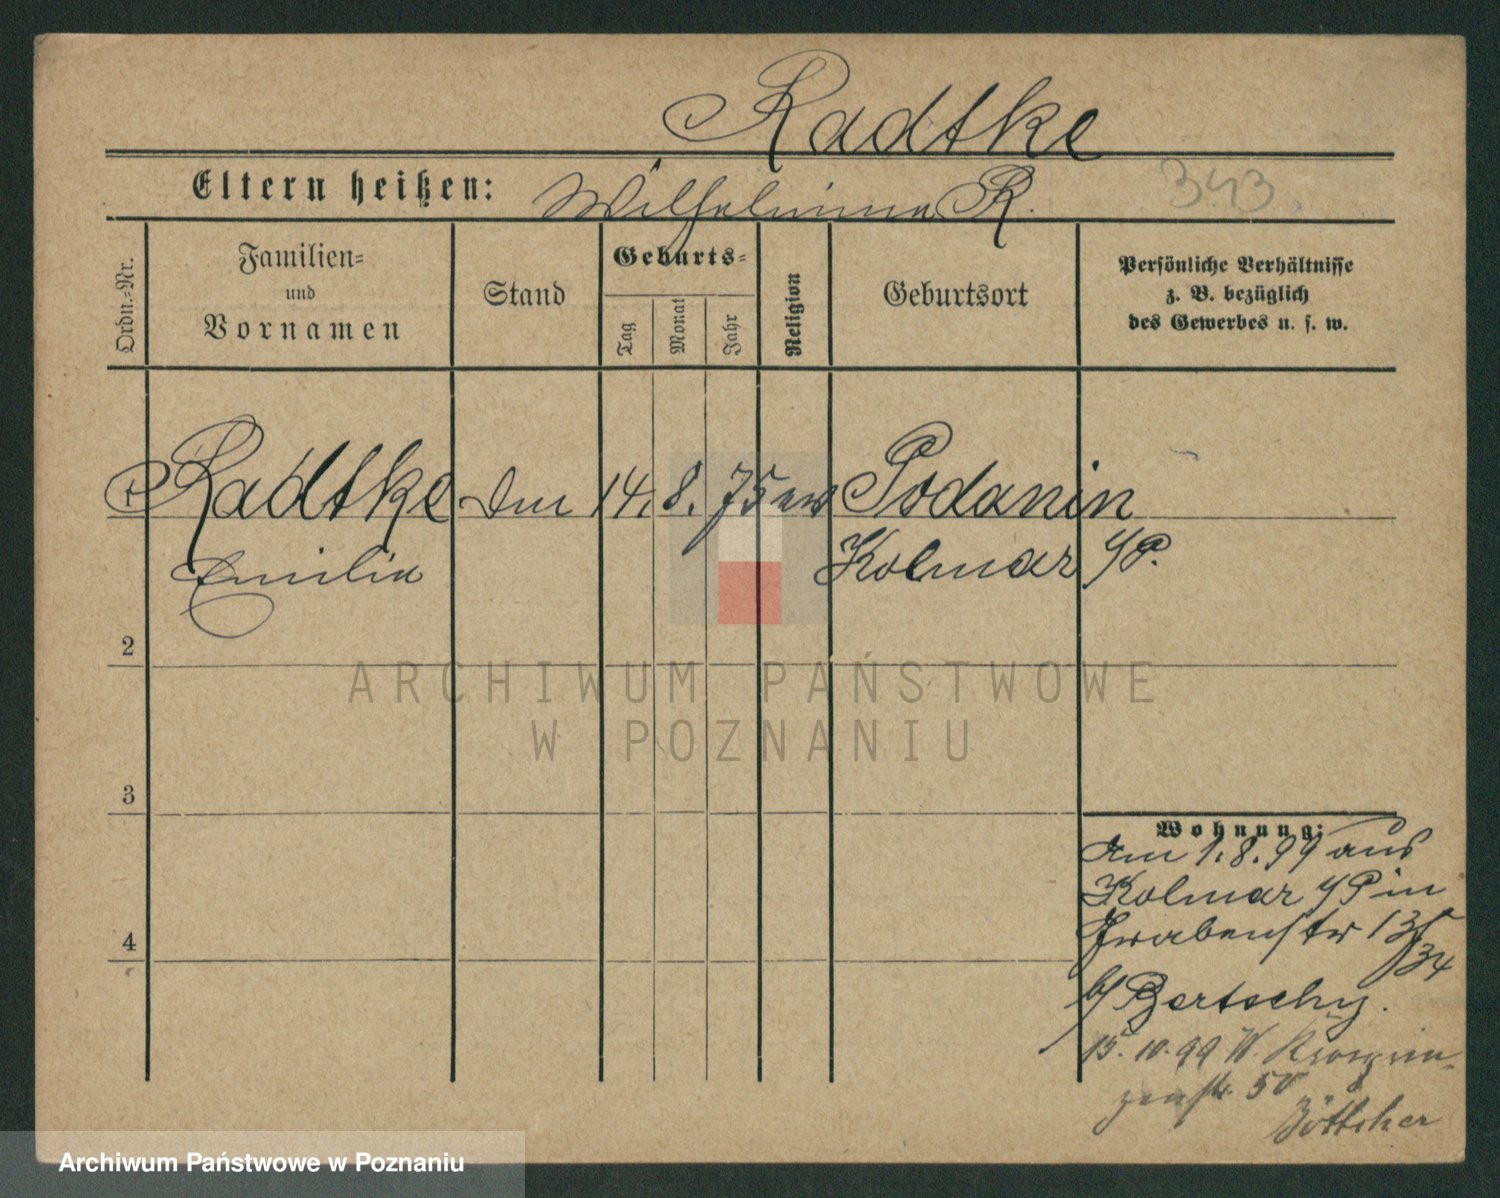 Radtke
Eltern heißen: Wilhelmine R. 343.
Ordn.=Nr.
Familien=
und
Vornamen
Stand
Geburts=
Tag
Monat
Jahr
Religion
Geburtsort
Persönliche Verhältnisse
z. B. bezüglich
des Gewerbes u. s. w.
1 Radtke 14. 8. 75 ev Podanin
Emilie Kolmar i/P.
2
ARCHIWUM PAŃSTWOWE
W POZNANIU
3
Wohnung:
am 1.8.99 aus
Kolmar i/P in
Grabenstr
34
b/ Bertschy.
15. 10. 99 W. Kronprin-
zenstr. 50
Böttcher
4
Archiwum Państwowe w Poznaniu